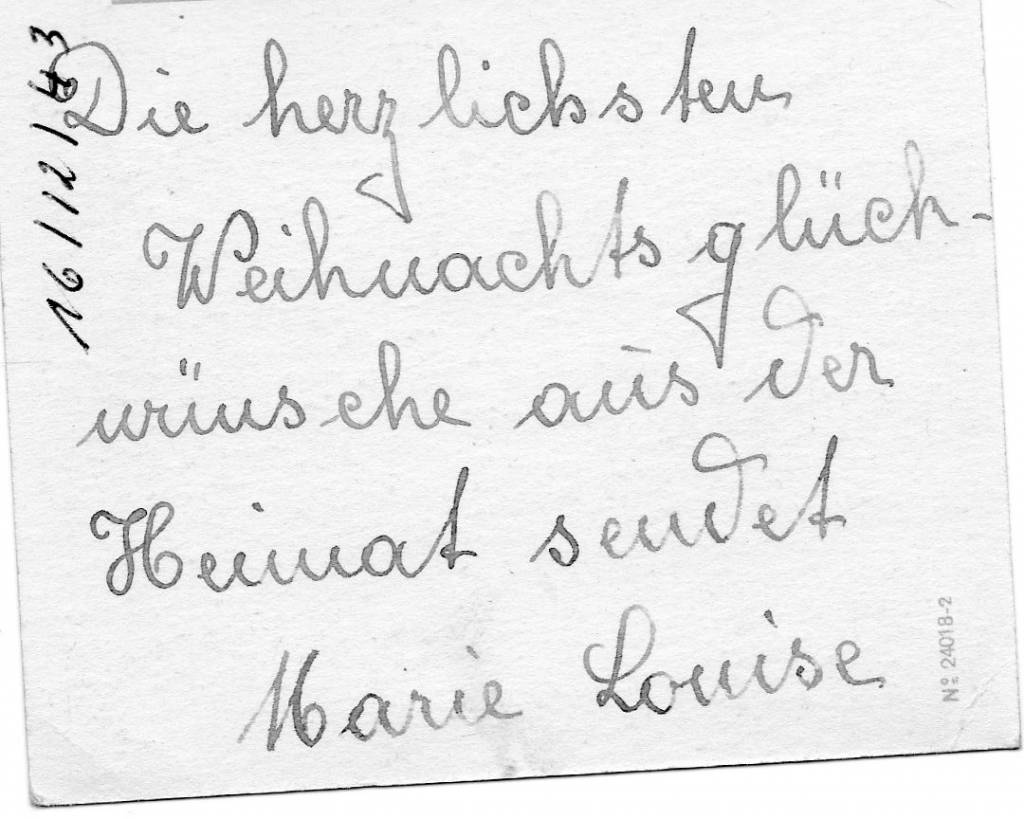 16/12/43
Die herzlichsten
Weihnachtsglück-
wünsche aus der
Heimat sendet
Marie Louise
Nº 24018-2